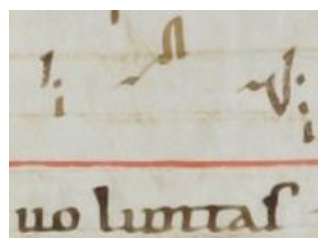 uo luntas